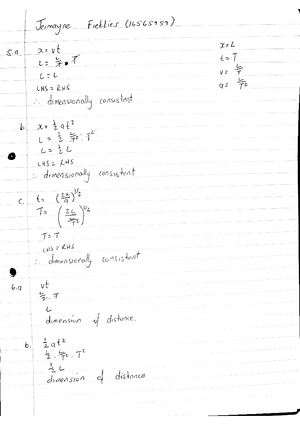 Jermayne (16565959)
5.a. x = vt
x = L
L = L/T · T
t = T
L = L
v = L/T
LHS = RHS
a = L/T²
∴ dimensionally consistent
b. x = ½ at²
L = ½ · L/T² · T²
L = ½ L
LHS = RHS
∴ dimensionally consistent
c. t = (2x/a)^1/2
T = (2L / L/T²)^1/2
T = T
LHS = RHS
∴ dimensionally consistent
6.a. vt
L/T · T
L
dimension of distance.
b. ½ at²
½ · L/T² · T²
½ L
dimension of distance